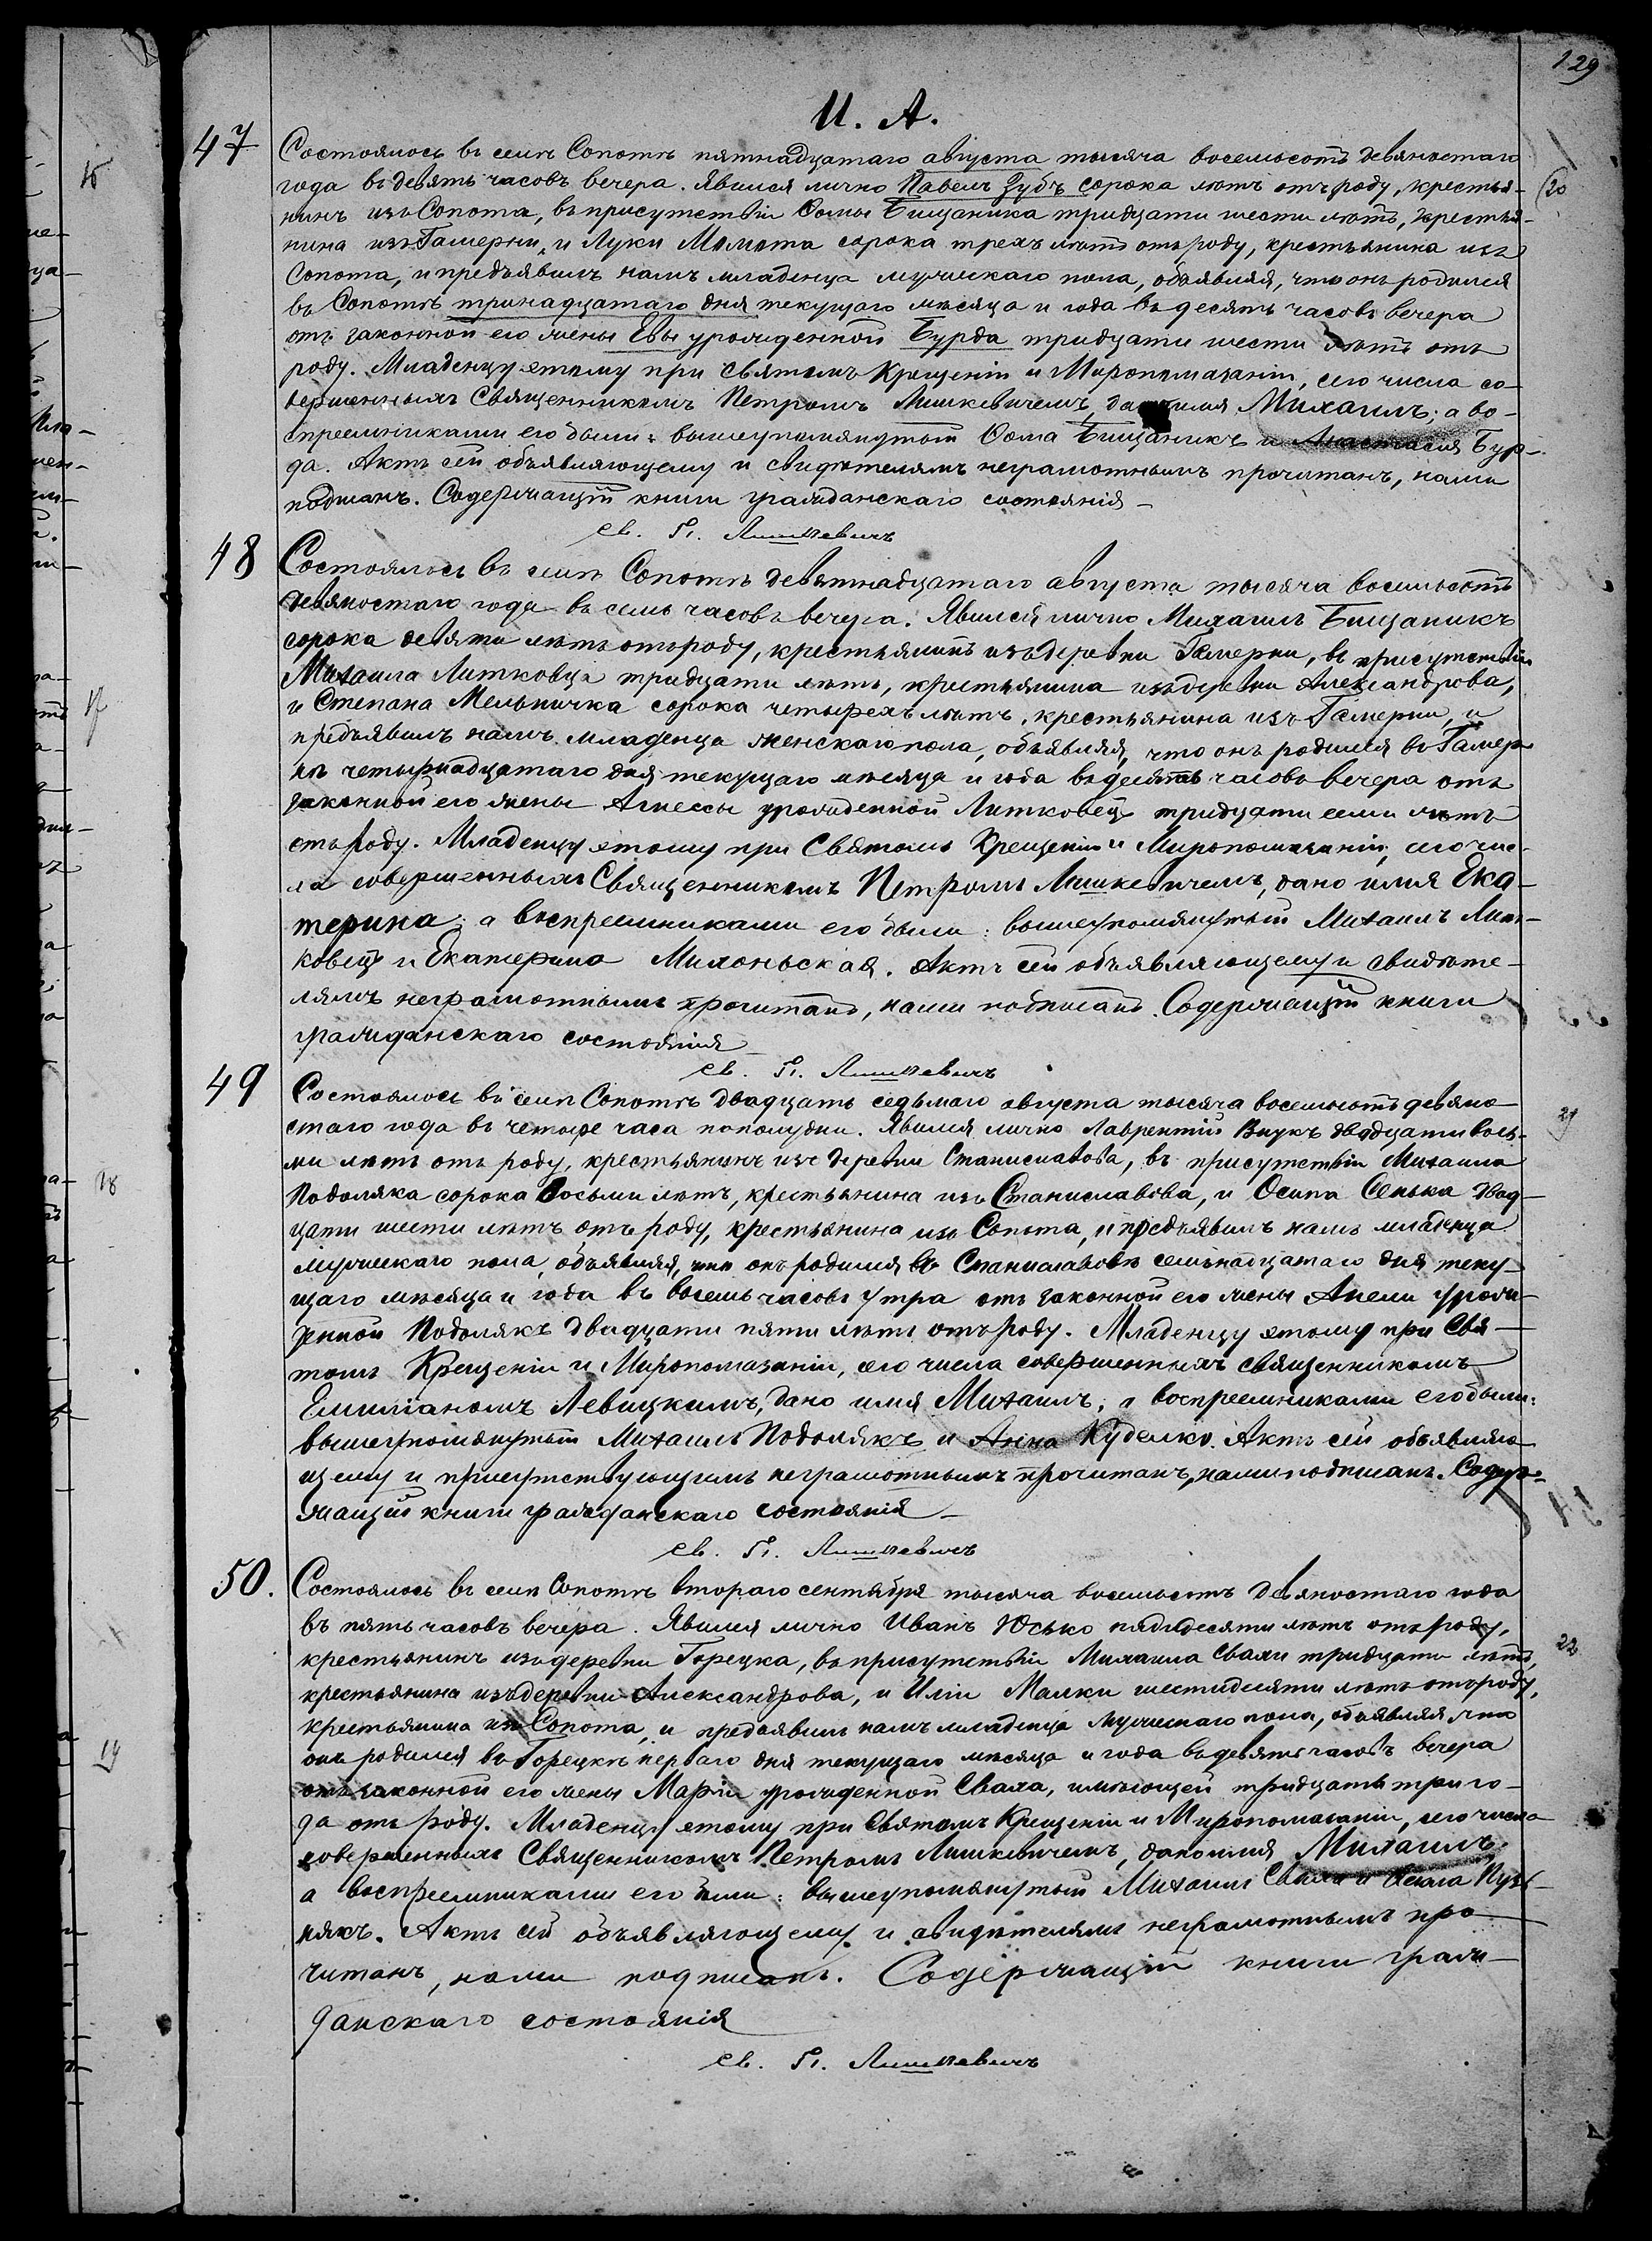 129
И. А.
47
Состоялось въ селѣ Сопотѣ пятнадцатаго августа тысяча восемьсотъ девяностаго
года въ девять часовъ вечера. Явился лично Павелъ Зубъ сорока лѣтъ отъ роду, крестья-
20
нинъ изъ Сопота, въ присутствіи Ѳомы Бищаника тридцати шести лѣтъ, крестья-
нина изъ Гамерни, и Луки Момота сорока трехъ лѣтъ отъ роду, крестьянина изъ
Сопота, и предъявилъ намъ младенца мужескаго пола, объявляя, что онъ родился
въ Сопотѣ тринадцатаго дня текущаго мѣсяца и года въ десять часовъ вечера
отъ законной его жены Евы урожденной Бурда тридцати шести лѣтъ отъ
роду. Младенцу этому при Святомъ Крещеніи и Миропомазаніи, сего числа со-
вершенныхъ Священникомъ Петромъ Лишкевичемъ, дано имя Михаилъ; а во-
спреемниками его были: вышеупомянутый Ѳома Бищаникъ и Анастасія Бур-
да. Актъ сей объявляющему и свидѣтелямъ неграмотнымъ прочитанъ, нами
подписанъ. Содержащій книги гражданскаго состоянія –
св. П. Лишкевичъ
48
Состоялось въ селѣ Сопотѣ девятнадцатаго августа тысяча восемьсотъ
девяностаго года въ семь часовъ вечера. Явился лично Михаилъ Бищаникъ
сорока девяти лѣтъ отъ роду, крестьянинъ изъ деревни Гамерни, въ присутствіи
Михаила Литковца тридцати лѣтъ, крестьянина изъ деревни Александрова,
и Степана Мельничка сорока четырехъ лѣтъ, крестьянина изъ Гамерни, и
предъявилъ намъ младенца женскаго пола, объявляя, что онъ родился въ Гамер-
нѣ четырнадцатаго дня текущаго мѣсяца и года въ десять часовъ вечера отъ
законной его жены Агнессы урожденной Литковецъ тридцати семи лѣтъ
отъ роду. Младенцу этому при Святомъ Крещеніи и Миропомазаніи, сего чис-
ла совершенныхъ Священникомъ Петромъ Лишкевичемъ, дано имя Ека-
терина; а воспреемниками его были: вышеупомянутый Михаилъ Лит-
ковецъ и Екатерина Михоньская. Актъ сей объявляющему и свидѣте-
лямъ неграмотнымъ прочитанъ, нами подписанъ. Содержащій книги
гражданскаго состоянія
св. П. Лишкевичъ
49
Состоялось въ селѣ Сопотѣ двадцать седьмаго августа тысяча восемьсотъ девяно-
21
стаго года въ четыре часа пополудни. Явился лично Лаврентій Внукъ двадцати вось-
ми лѣтъ отъ роду, крестьянинъ изъ деревни Станиславова, въ присутствіи Михаила
Подоляка сорока восьми лѣтъ, крестьянина изъ Станиславова, и Осипа Сенька двад-
цати шести лѣтъ отъ роду, крестьянина изъ Сопота, и предъявилъ намъ младенца
мужескаго пола, объявляя, что онъ родился въ Станиславовѣ семьнадцатаго дня теку-
щаго мѣсяца и года въ восемь часовъ утра отъ законной его жены Анели урож-
денной Подолякъ двадцати пяти лѣтъ отъ роду. Младенцу этому при Свя-
томъ Крещеніи и Миропомазаніи, сего числа совершенныхъ священникомъ
Емиліаномъ Левицкимъ, дано имя Михаилъ; а воспреемниками его были:
вышеупомянутый Михаилъ Подолякъ и Анна Куделко. Актъ сей объявляю-
щему и присутствующимъ неграмотнымъ прочитанъ, нами подписанъ. Содер-
жащій книги гражданскаго состоянія –
св. П. Лишкевичъ
50.
Состоялось въ селѣ Сопотѣ втораго сентября тысяча восемьсотъ девяностаго года
въ пять часовъ вечера. Явился лично Иванъ Юсько пядидесяти лѣтъ отъ роду,
22
крестьянинъ изъ деревни Горецка, въ присутствіи Михаила Свахи тридцати лѣтъ,
крестьянина изъ деревни Александрова, и Иліи Малки шестидесяти лѣтъ отъ роду,
крестьянина изъ Сопота, и предъявилъ намъ младенца мужескаго пола, объявляя что
онъ родился въ Горецкѣ перваго дня текущаго мѣсяца и года въ девять часовъ вечера
отъ законной его жены Маріи урожденной Сваха, имѣющей тридцать три го-
да отъ роду. Младенцу этому при Святомъ Крещеніи и Миропомазаніи, сего числа
совершенныхъ Священникомъ Петромъ Лишкевичемъ, дано имя Михаилъ,
а воспреемниками его были: вышеупомянутый Михаилъ Сваха и
някъ. Актъ сей объявляющему и свидѣтелямъ неграмотнымъ про-
читанъ, нами подписанъ. Содержащій книги граж-
данскаго состоянія
св. П. Лишкевичъ